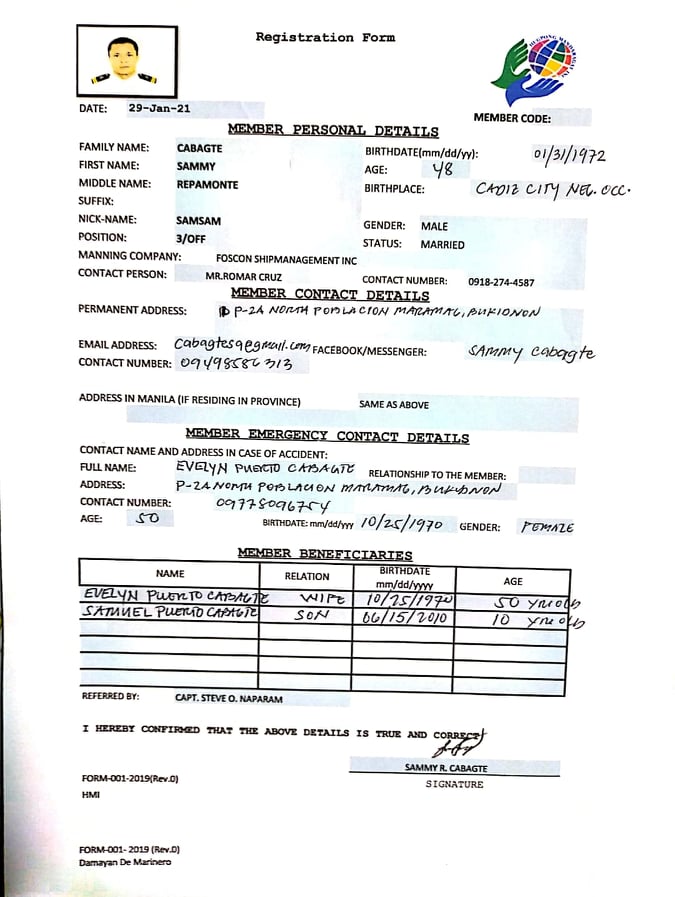 Registration Form
DATE: 29-Jan-21
MEMBER CODE:
MEMBER PERSONAL DETAILS
FAMILY NAME: CABAGTE BIRTHDATE(mm/dd/yy): 01/31/1972
FIRST NAME: SAMMY AGE: 48
MIDDLE NAME: REPAMONTE BIRTHPLACE: CADIZ CITY NEG. OCC.
SUFFIX:
NICK-NAME: SAMSAM GENDER: MALE
POSITION: 3/OFF STATUS: MARRIED
MANNING COMPANY: FOSCON SHIPMANAGEMENT INC
CONTACT PERSON: MR.ROMAR CRUZ CONTACT NUMBER: 0918-274-4587
MEMBER CONTACT DETAILS
PERMANENT ADDRESS: P-2A NORTH POBLACION MARAMAG, BUKIDNON
EMAIL ADDRESS: cabagtes9@gmail.com FACEBOOK/MESSENGER: SAMMY Cabagte
CONTACT NUMBER: 09498586313
ADDRESS IN MANILA (IF RESIDING IN PROVINCE) SAME AS ABOVE
MEMBER EMERGENCY CONTACT DETAILS
CONTACT NAME AND ADDRESS IN CASE OF ACCIDENT:
FULL NAME: EVELYN PUERTO CABAGTE RELATIONSHIP TO THE MEMBER:
ADDRESS: P-2A NORTH POBLACION MARAMAG, BUKIDNON
CONTACT NUMBER: 09778096754
AGE: 50 BIRTHDATE: mm/dd/yyy 10/25/1970 GENDER: FEMALE
MEMBER BENEFICIARIES
NAME RELATION BIRTHDATE mm/dd/yyyy AGE
EVELYN PUERTO CABAGTE WIFE 10/25/1970 50 yrs old
SAMUEL PUERTO CABAGTE SON 06/15/2010 10 yrs old
REFERRED BY: CAPT. STEVE O. NAPARAM
I HEREBY CONFIRMED THAT THE ABOVE DETAILS IS TRUE AND CORRECT
SAMMY R. CABAGTE
SIGNATURE
FORM-001-2019(Rev.0)
HMI
FORM-001- 2019 (Rev.0)
Damayan De Marinero